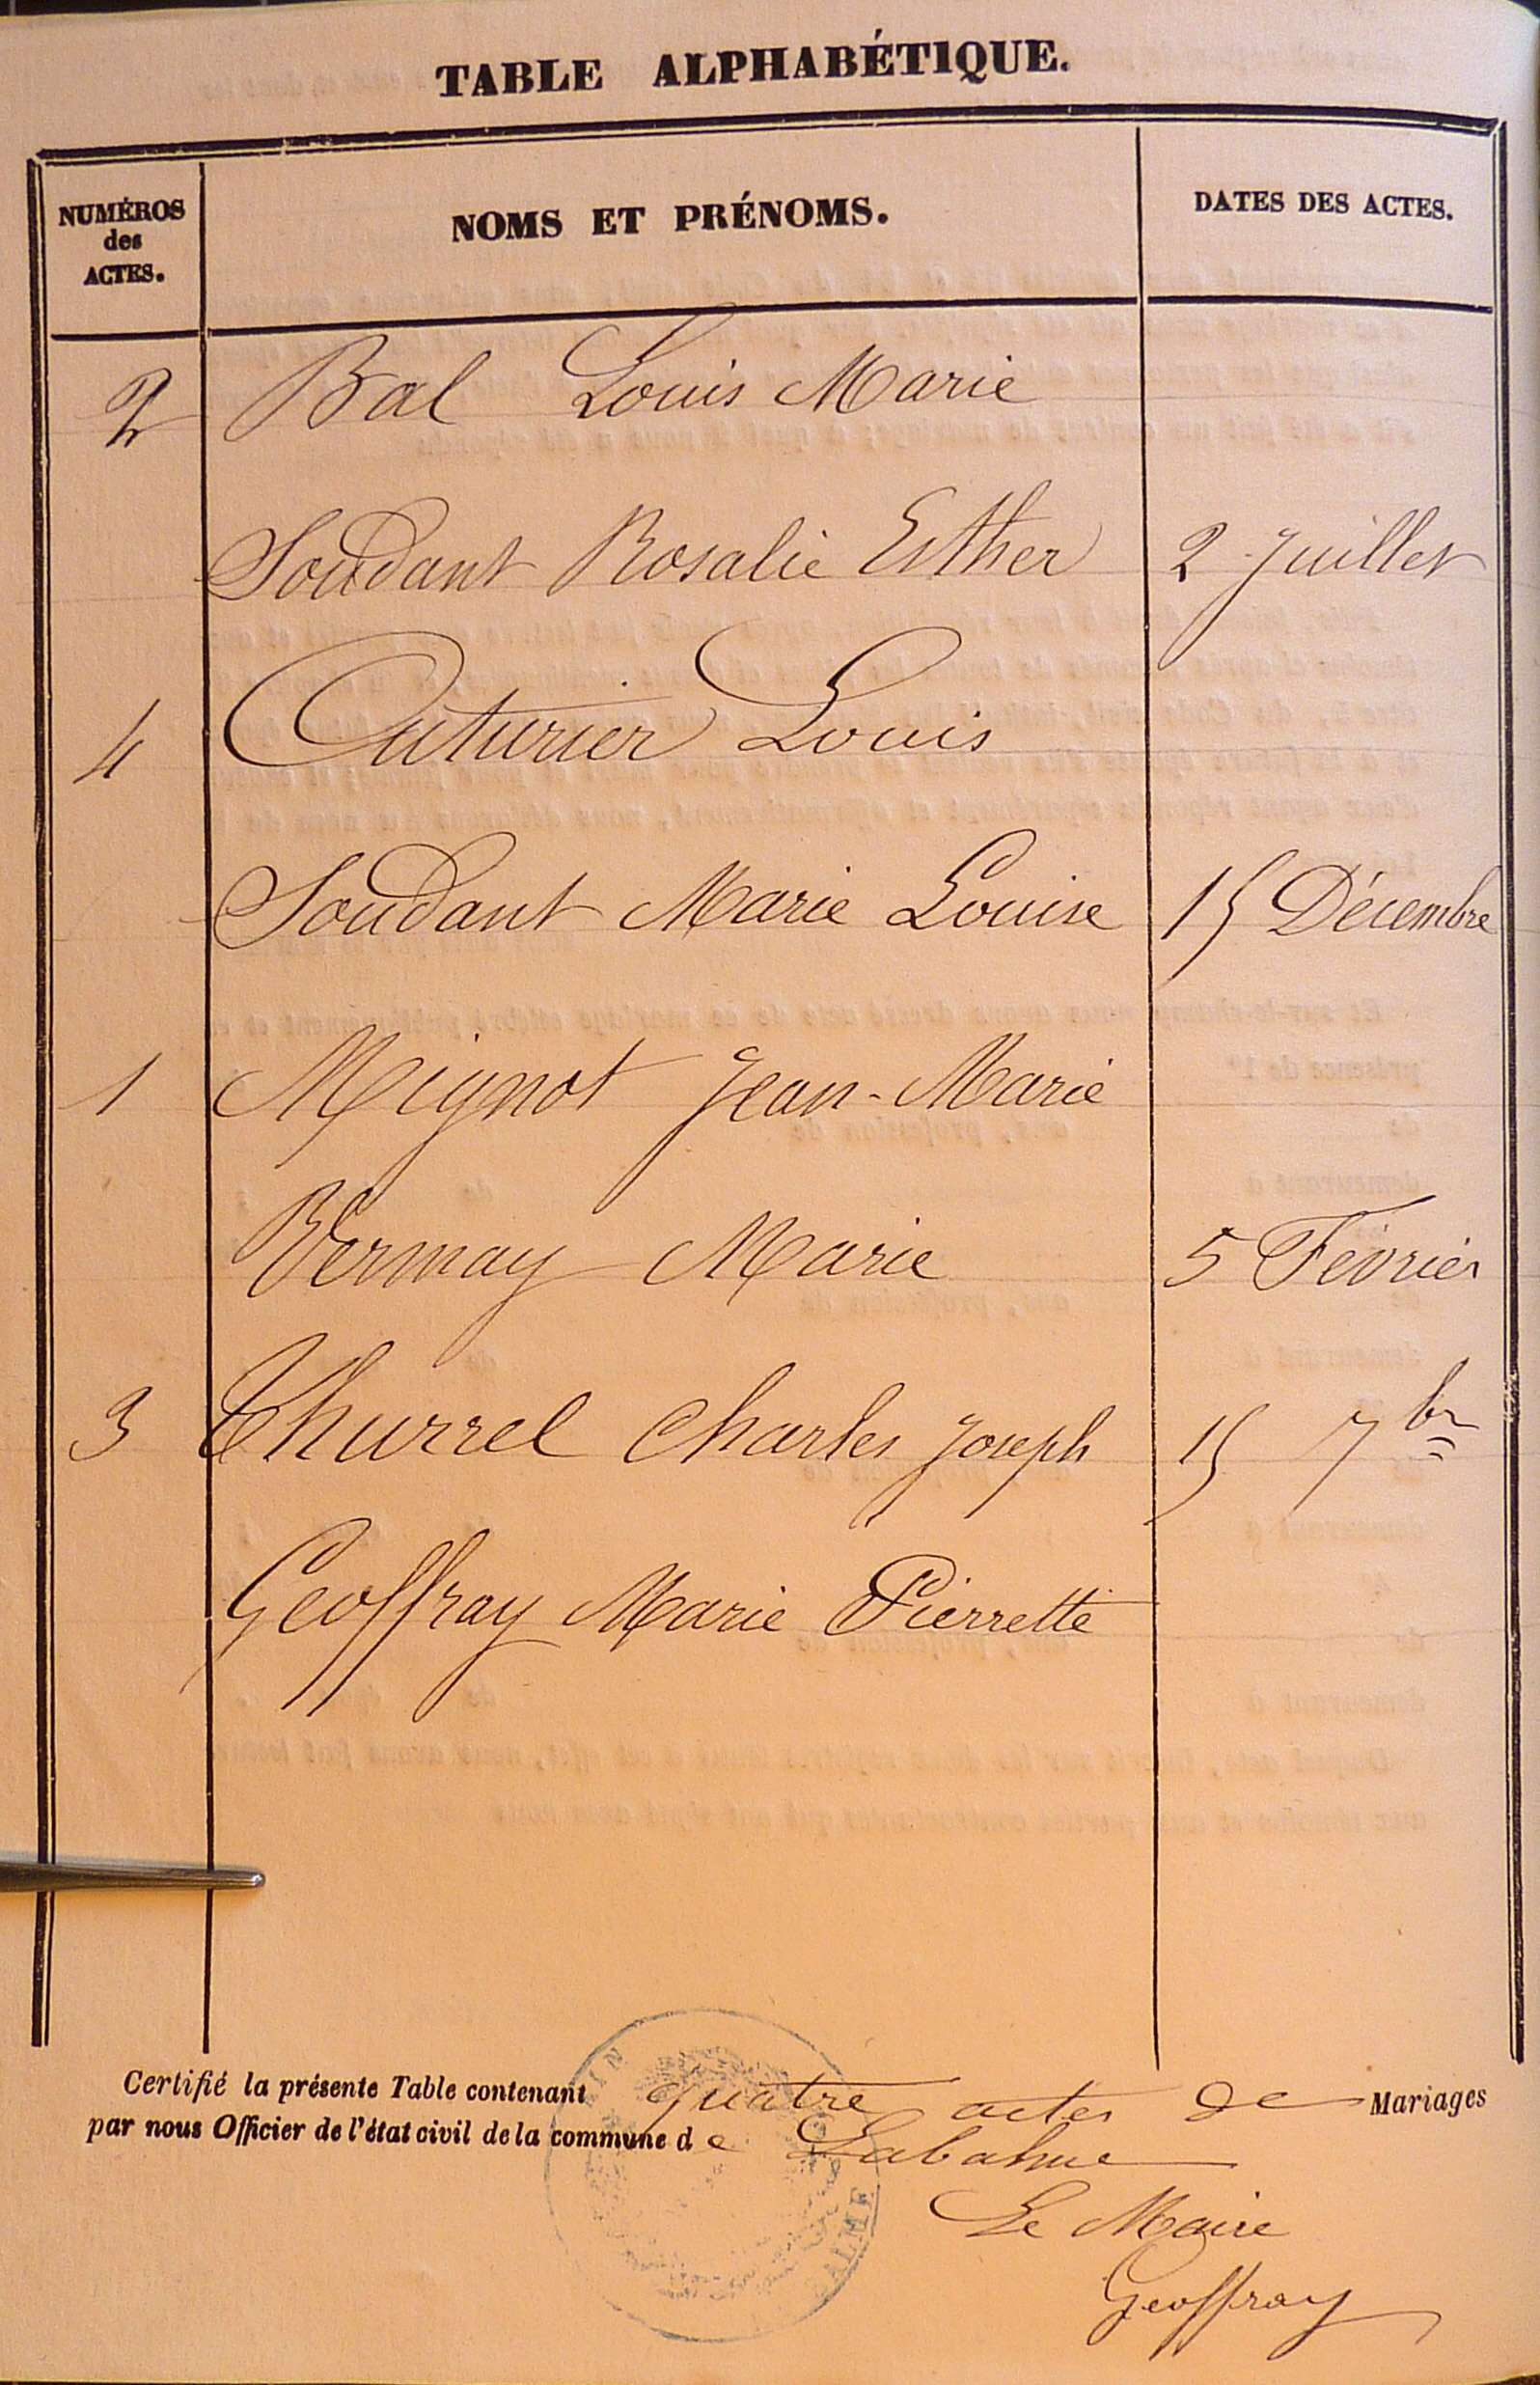 TABLE ALPHABÉTIQUE.
NUMÉROS des ACTES. NOMS ET PRÉNOMS. DATES DES ACTES.
2 Bal Louis Marie
Soudant Rosalie Esther 2 Juillet
4 Cuturier Louis
Soudant Marie Louise 15 Décembre
1 Mignot Jean-Marie
Vermay Marie 5 Février
3 Thurrel Charles Joseph 15 7bre
Geoffray Marie Pierrette
Certifié la présente Table contenant quatre actes de Mariages
par nous Officier de l'état civil de la commune de Labalme
Le Maire
Geoffray
AIN
BALME